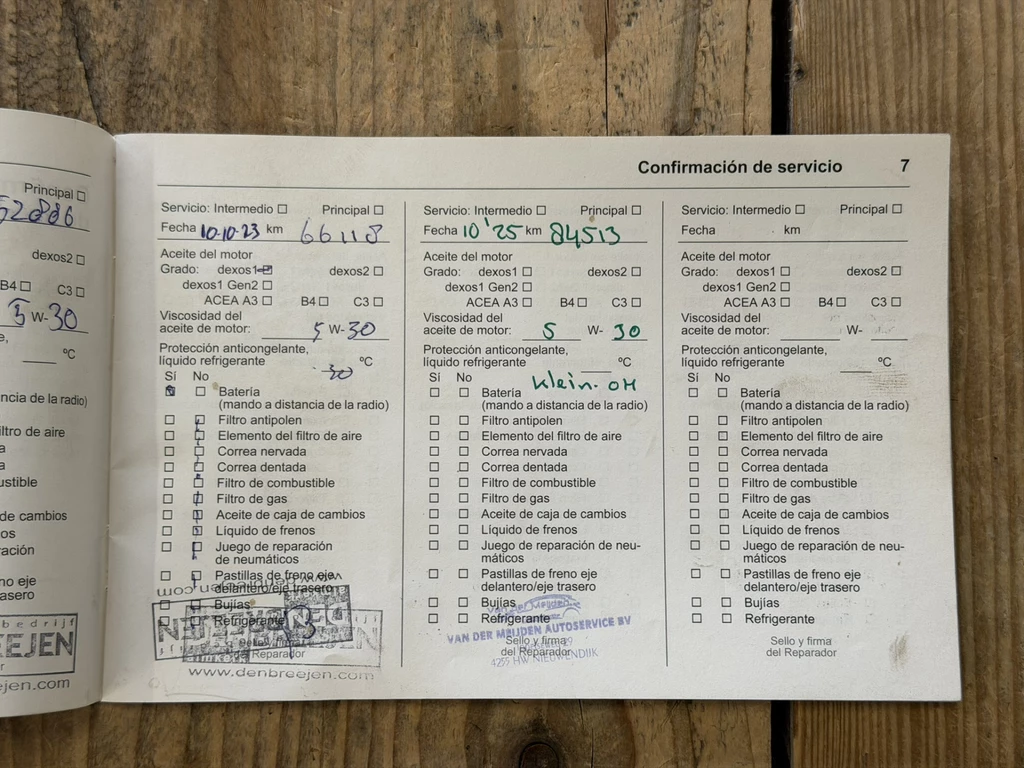 Principal
52886
dexos2
B4 C3
5 W-30
e,
ºC
ncia de la radio)
iltro de aire
a
a
ustible
de cambios
os
ración
no eje
asero
bedrijf
EEJEN
r
jen.com
Confirmación de servicio 7
Servicio: Intermedio Principal
Fecha 10-10-23 km 66118
Aceite del motor
Grado: dexos1 dexos2
dexos1 Gen2
ACEA A3 B4 C3
Viscosidad del
aceite de motor: 5 W-30
Protección anticongelante,
líquido refrigerante -30 ºC
Sí No
Batería
(mando a distancia de la radio)
Filtro antipolen
Elemento del filtro de aire
Correa nervada
Correa dentada
Filtro de combustible
Filtro de gas
Aceite de caja de cambios
Líquido de frenos
Juego de reparación
de neumáticos
Pastillas de freno eje
delantero/eje trasero
Bujías
Refrigerante
Sello y firma
del Reparador
www.denbreejen.com
Servicio: Intermedio Principal
Fecha 10 '25 km 84513
Aceite del motor
Grado: dexos1 dexos2
dexos1 Gen2
ACEA A3 B4 C3
Viscosidad del
aceite de motor: 5 W- 30
Protección anticongelante,
líquido refrigerante ºC
Sí No klein. OH
Batería
(mando a distancia de la radio)
Filtro antipolen
Elemento del filtro de aire
Correa nervada
Correa dentada
Filtro de combustible
Filtro de gas
Aceite de caja de cambios
Líquido de frenos
Juego de reparación de neu-
máticos
Pastillas de freno eje
delantero/eje trasero
Bujías
Refrigerante
VAN DER MEIJDEN AUTOSERVICE BV
Sello y firma
del Reparador
4255 HW NIEUWENDIJK
Servicio: Intermedio Principal
Fecha km
Aceite del motor
Grado: dexos1 dexos2
dexos1 Gen2
ACEA A3 B4 C3
Viscosidad del
aceite de motor: W-
Protección anticongelante,
líquido refrigerante ºC
Sí No
Batería
(mando a distancia de la radio)
Filtro antipolen
Elemento del filtro de aire
Correa nervada
Correa dentada
Filtro de combustible
Filtro de gas
Aceite de caja de cambios
Líquido de frenos
Juego de reparación de neu-
máticos
Pastillas de freno eje
delantero/eje trasero
Bujías
Refrigerante
Sello y firma
del Reparador